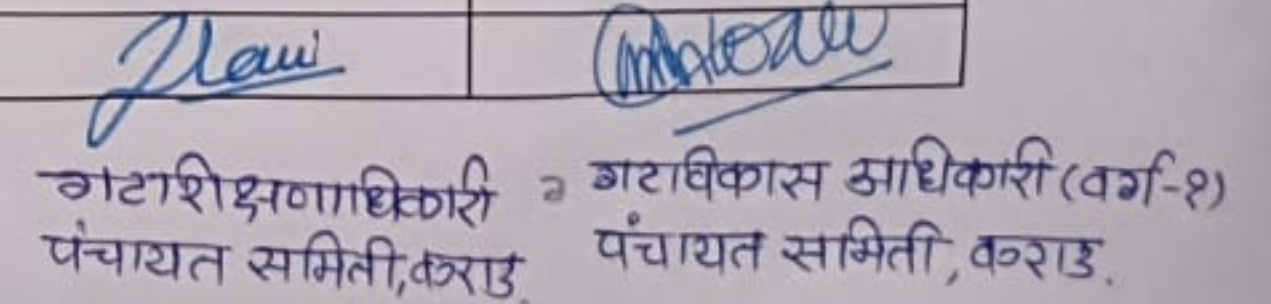 गटशिक्षणाधिकारी
पंचायत समिती,कराड.
गटविकास अधिकारी (वर्ग-१)
पंचायत समिती, कराड.